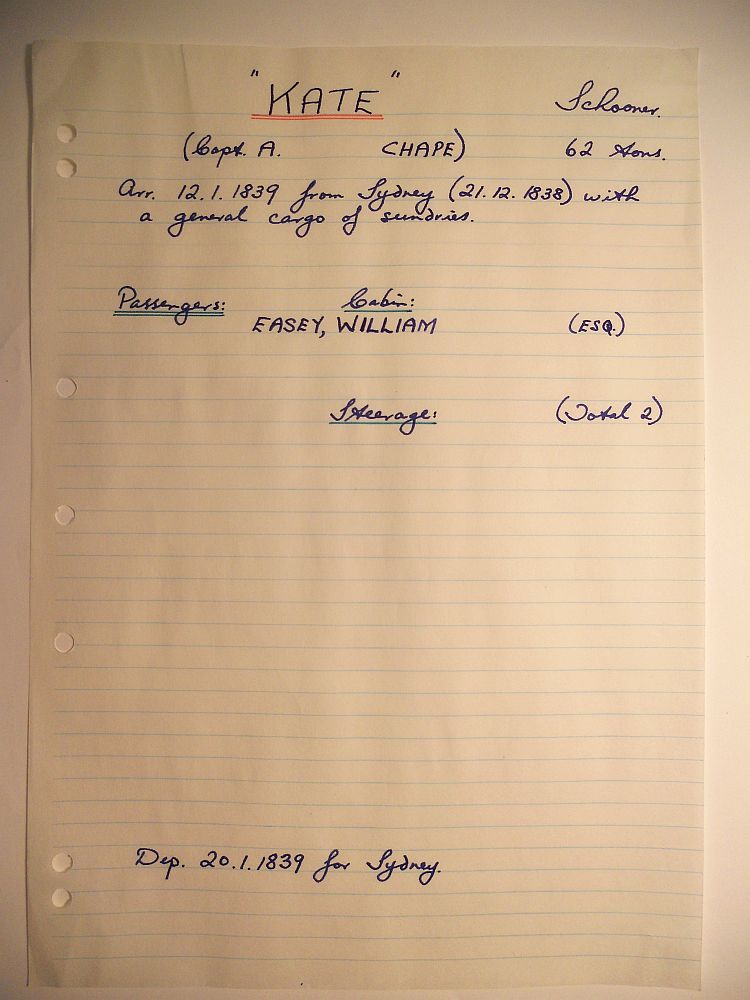 "KATE" Schooner.
(Capt. A. CHAPE) 62 tons.
Arr. 12.1.1839 from Sydney (21.12.1838) with
a general cargo of sundries.
Passengers: Cabin:
EASEY, WILLIAM (ESQ.)
Steerage: (Total 2)
Dep. 20.1.1839 for Sydney.